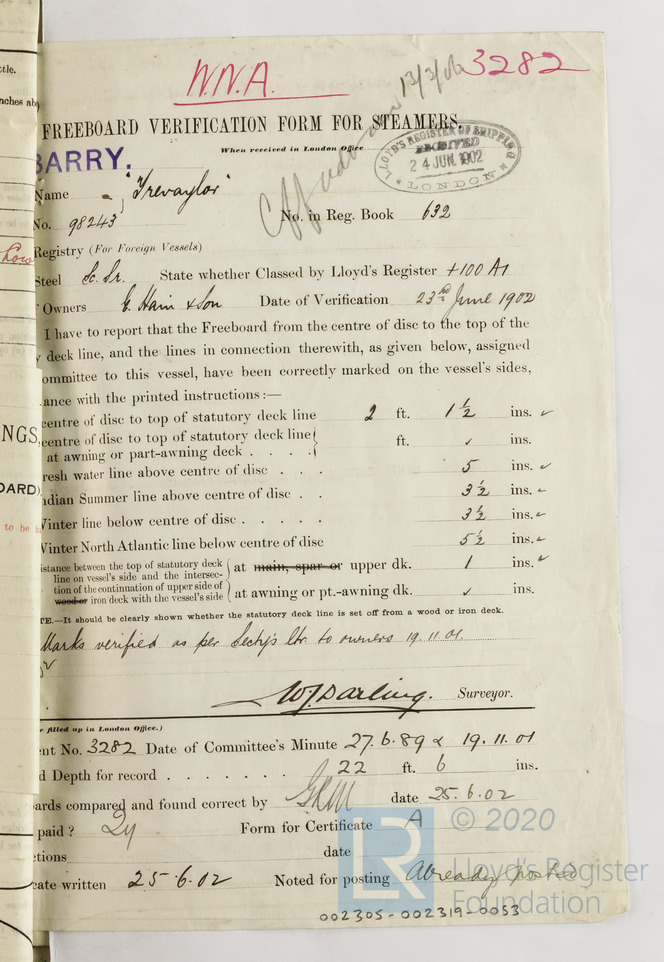 W.N.A.
13/3/06
3282
FREEBOARD VERIFICATION FORM FOR STEAMERS.
When received in London Office
LLOYD'S REGISTER OF SHIPPING
RECEIVED
24 JUN. 1902
LONDON
BARRY.
Name "Trevaylor"
No. 98243 No. in Reg. Book 632
Registry (For Foreign Vessels)
Steel Sc. Sr. State whether Classed by Lloyd's Register +100 A1
Owners E. Hain & Son Date of Verification 23rd June 1902
I have to report that the Freeboard from the centre of disc to the top of the
deck line, and the lines in connection therewith, as given below, assigned
ommittee to this vessel, have been correctly marked on the vessel's sides,
ance with the printed instructions:—
centre of disc to top of statutory deck line 2 ft. 1 1/2 ins. ✓
centre of disc to top of statutory deck line
at awning or part-awning deck . . . . ft. ✓ ins.
resh water line above centre of disc . . . 5 ins. ✓
ndian Summer line above centre of disc . . 3 1/2 ins. ✓
Winter line below centre of disc . . . . . 3 1/2 ins. ✓
Winter North Atlantic line below centre of disc 5 1/2 ins. ✓
istance between the top of statutory deck
line on vessel's side and the intersec-
tion of the continuation of upper side of
wood or iron deck with the vessel's side
at main, spar or upper dk. 1 ins. ✓
at awning or pt.-awning dk. ✓ ins.
TE.—It should be clearly shown whether the statutory deck line is set off from a wood or iron deck.
Marks verified as per Secty's ltr. to owners 19.11.01.
W J Darling. Surveyor.
e filled up in London Office.)
nt No. 3282 Date of Committee's Minute 27.6.89 & 19.11.01
d Depth for record . . . . . . . 22 ft. 6 ins.
ards compared and found correct by date 25.6.02
paid? Form for Certificate A
ctions date
cate written 25.6.02 Noted for posting Already posted
002305-002319-0053
LR
© 2020
Lloyd's Register
Foundation
ttle.
nches abo
Low
NGS,
OARD)
to be